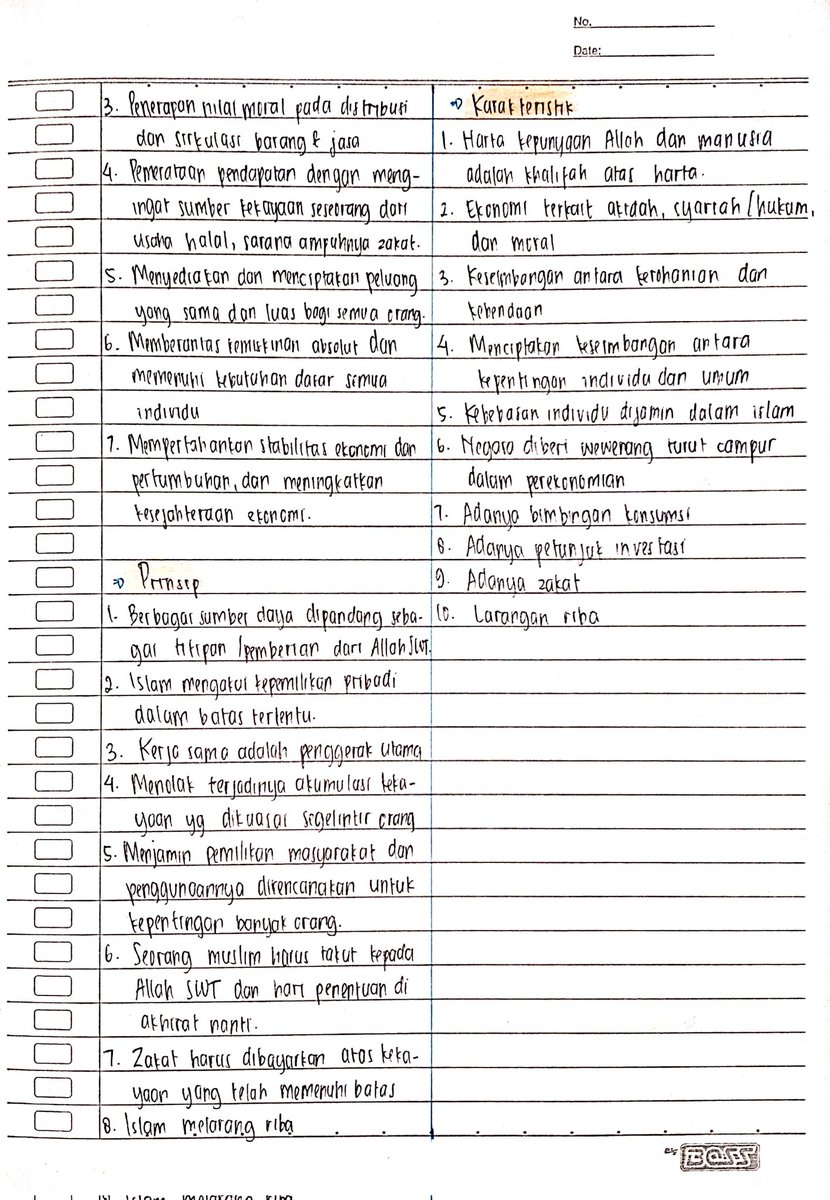 No.
Date:
3. Penerapan nilai moral pada distributi
dan sirkulasi barang & jasa
4. Pemerataan pendapatan dengan meng-
ingat sumber kekayaan seseorang dari
usaha halal, sarana ampuhnya zakat.
5. Menyediakan dan menciptakan peluang
yang sama dan luas bagi semua orang.
6. Memberantas kemiskinan absolut dan
memenuhi kebutuhan dasar semua
individu
7. Mempertahankan stabilitas ekonomi dan
pertumbuhan, dan meningkatkan
kesejahteraan ekonomi.
⇒ Prinsip
1. Berbagai sumber daya dipandang seba-
gai titipan /pemberian dari Allah SWT.
2. Islam mengakui kepemilikan pribadi
dalam batas tertentu.
3. Kerja sama adalah penggerak utama
4. Menolak terjadinya akumulasi keka-
yaan yg dikuasai segelintir orang
5. Menjamin pemilikan masyarakat dan
penggunaannya direncanakan untuk
kepentingan banyak orang.
6. Seorang muslim harus takut kepada
Allah SWT dan hari penentuan di
akhirat nanti.
7. Zakat harus dibayarkan atas keka-
yaan yang telah memenuhi batas
8. Islam melarang riba
⇒ Karakteristik
1. Harta kepunyaan Allah dan manusia
adalah khalifah atas harta.
2. Ekonomi terkait akidah, syariah /hukum,
dan moral
3. Keseimbangan antara kerohanian dan
kebendaan
4. Menciptakan keseimbangan antara
kepentingan individu dan umum
5. Kebebasan individu dijamin dalam islam
6. Negara diberi wewenang turut campur
dalam perekonomian
7. Adanya bimbingan konsumsi
8. Adanya petunjuk investasi
9. Adanya zakat
10. Larangan riba
BOSS